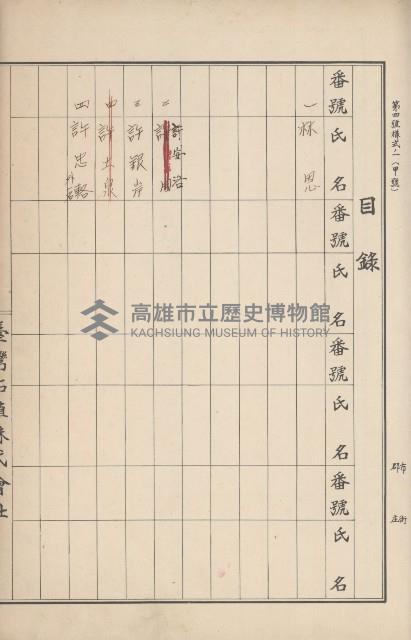 第四號樣式ノ一(甲號)
市郡
街庄
目錄
番號 氏名 番號 氏名 番號 氏名 番號 氏名
一 林恩
二 許安治
三 許艱岸
四 許土泉
四 許忠略 外一名
臺灣石植株式會社
高雄市立歷史博物館
KAOHSIUNG MUSEUM OF HISTORY